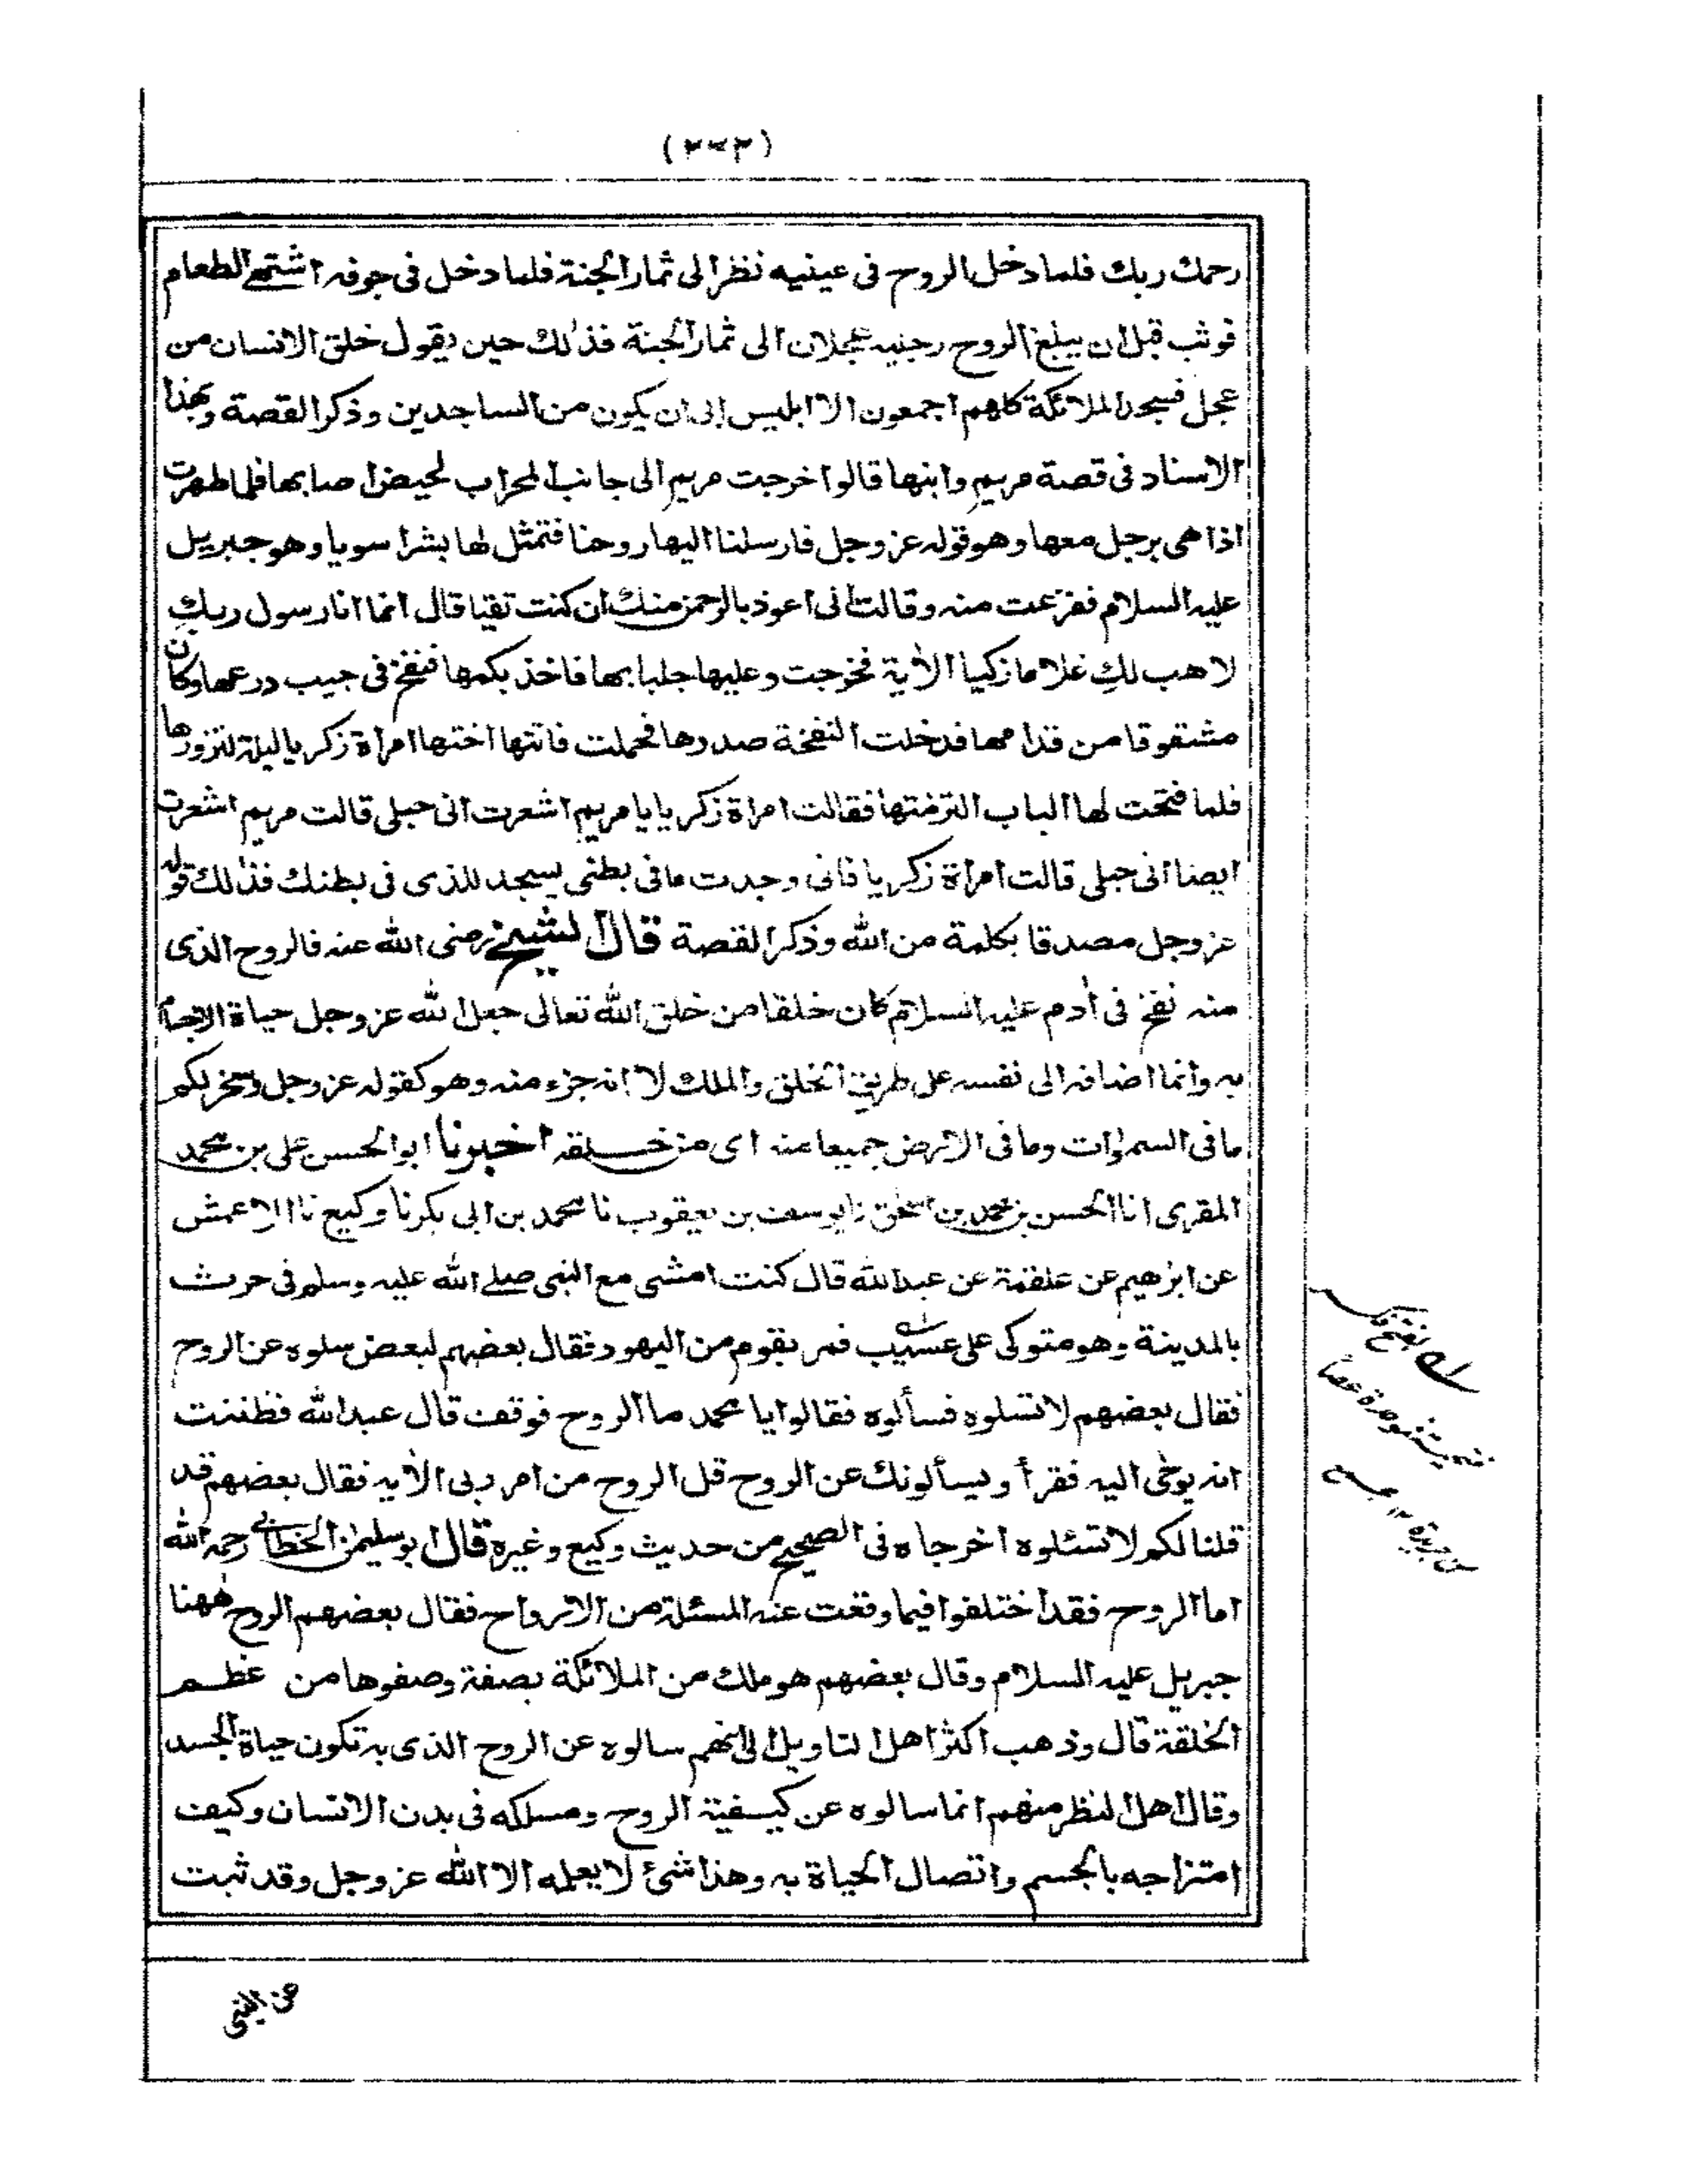 رحمك ربك فلما دخل الروح فى عينيه نظر الى ثمار الجنة فلما دخل فى جوفه اشتهى الطعام
فوثب قبل ان يبلغ الروح رجليه عجلان الى ثمار الجنة فذلك حين يقول خلق الانسان من
عجل فسجد الملائكة كلهم اجمعون الا ابليس ابى ان يكون من الساجدين وذكر القصة وبهذا
الاسناد فى قصة مريم وابنها قالوا خرجت مريم الى جانب المحراب لحيض اصابها فلما طهرت
اذا هى برجل معها وهو قوله عز وجل فارسلنا اليها روحنا فتمثل لها بشرا سويا وهو جبريل
عليه السلام ففزعت منه وقالت انى اعوذ بالرحمن منك ان كنت تقيا قال انما انا رسول ربك
لاهب لك غلاما زكيا الآية فخرجت وعليها جلبابها فاخذ بكمها فنفخ فى جيب درعها وكان
مشقوقا من قدامها فدخلت النفخة صدرها فحملت فاتتها اختها امراة زكريا ليلة لتزورها
فلما فتحت لها الباب التزمتها فقالت امراة زكريا يا مريم اشعرت انى حبلى قالت مريم اشعرت
ايضا انى حبلى قالت امراة زكريا فانى وجدت ما فى بطنى يسجد للذى فى بطنك فذلك قوله
عز وجل مصدقا بكلمة من الله وذكر القصة قال الشيخ رضى الله عنه فالروح الذى
منه نفخ فى أدم عليه السلام كان خلقا من خلق الله تعالى جعل الله عز وجل حياة الاجسام
به وانما اضافه الى نفسه على طريق الخلق والملك لا انه جزء منه وهو كقوله عز وجل وسخر لكم
ما فى السموات وما فى الارض جميعا منه اى من خلقه اخبرنا ابو الحسن على بن محمد
المقرى انا الحسن بن محمد بن اسحق نا يوسف بن يعقوب نا محمد بن ابى بكر نا وكيع نا الاعمش
عن ابرهيم عن علقمة عن عبد الله قال كنت امشى مع النبى صلى الله عليه وسلم فى حرث
بالمدينة وهو متوكى على عسيب فمر بقوم من اليهود فقال بعضهم لبعض سلوه عن الروح
فقال بعضهم لا تسلوه فسألوه فقالوا يا محمد ما الروح فوقف قال عبد الله فظننت
انه يوحى اليه فقرأ ويسألونك عن الروح قل الروح من امر ربى الأية فقال بعضهم قد
قلنا لكم لا تسئلوه اخرجاه فى الصحيح من حديث وكيع وغيره قال ابو سليمن الخطابى رحمه الله
اما الروح فقد اختلفوا فيما وقعت عنه المسئلة من الارواح فقال بعضهم الروح ههنا
جبريل عليه السلام وقال بعضهم هو ملك من الملائكة بصفة وصفوها من عظم
الخلقة قال وذهب اكثر اهل التاويل الى انهم سالوه عن الروح الذى به تكون حياة الجسد
وقال اهل النظر منهم انما سالوه عن كيفية الروح ومسلكه فى بدن الانسان وكيف
امتزاجه بالجسم واتصال الحياة به وهذا شئ لا يعلمه الا الله عز وجل وقد ثبت
عن النبى